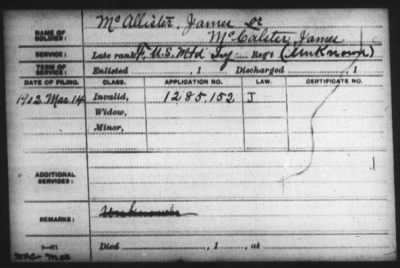 NAME OF SOLDIER: McAllister, James Sr
McCalster, James
SERVICE: Late rank, U.S. Mtd Inf Reg't (Unknown)
TERM OF SERVICE: Enlisted , 1 Discharged , 1
DATE OF FILING. CLASS. APPLICATION NO. LAW. CERTIFICATE NO.
1902 Mar 14 Invalid, 1285.152 J
Widow,
Minor,
ADDITIONAL SERVICES:
REMARKS: Unknown
Died , 1 , at